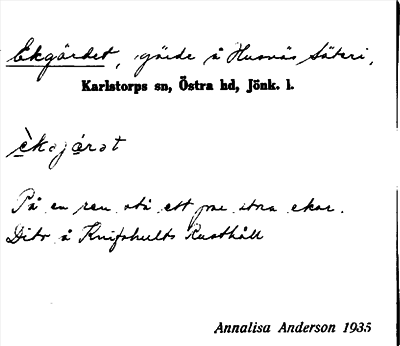 Ekgärdet, gärde å Husnäs Säteri,
Karlstorps sn, Östra hd, Jönk. l.
èkajárat
På en ren stå ett par stora ekar.
Dito å Knifshults Rusthåll
Annalisa Anderson 1935